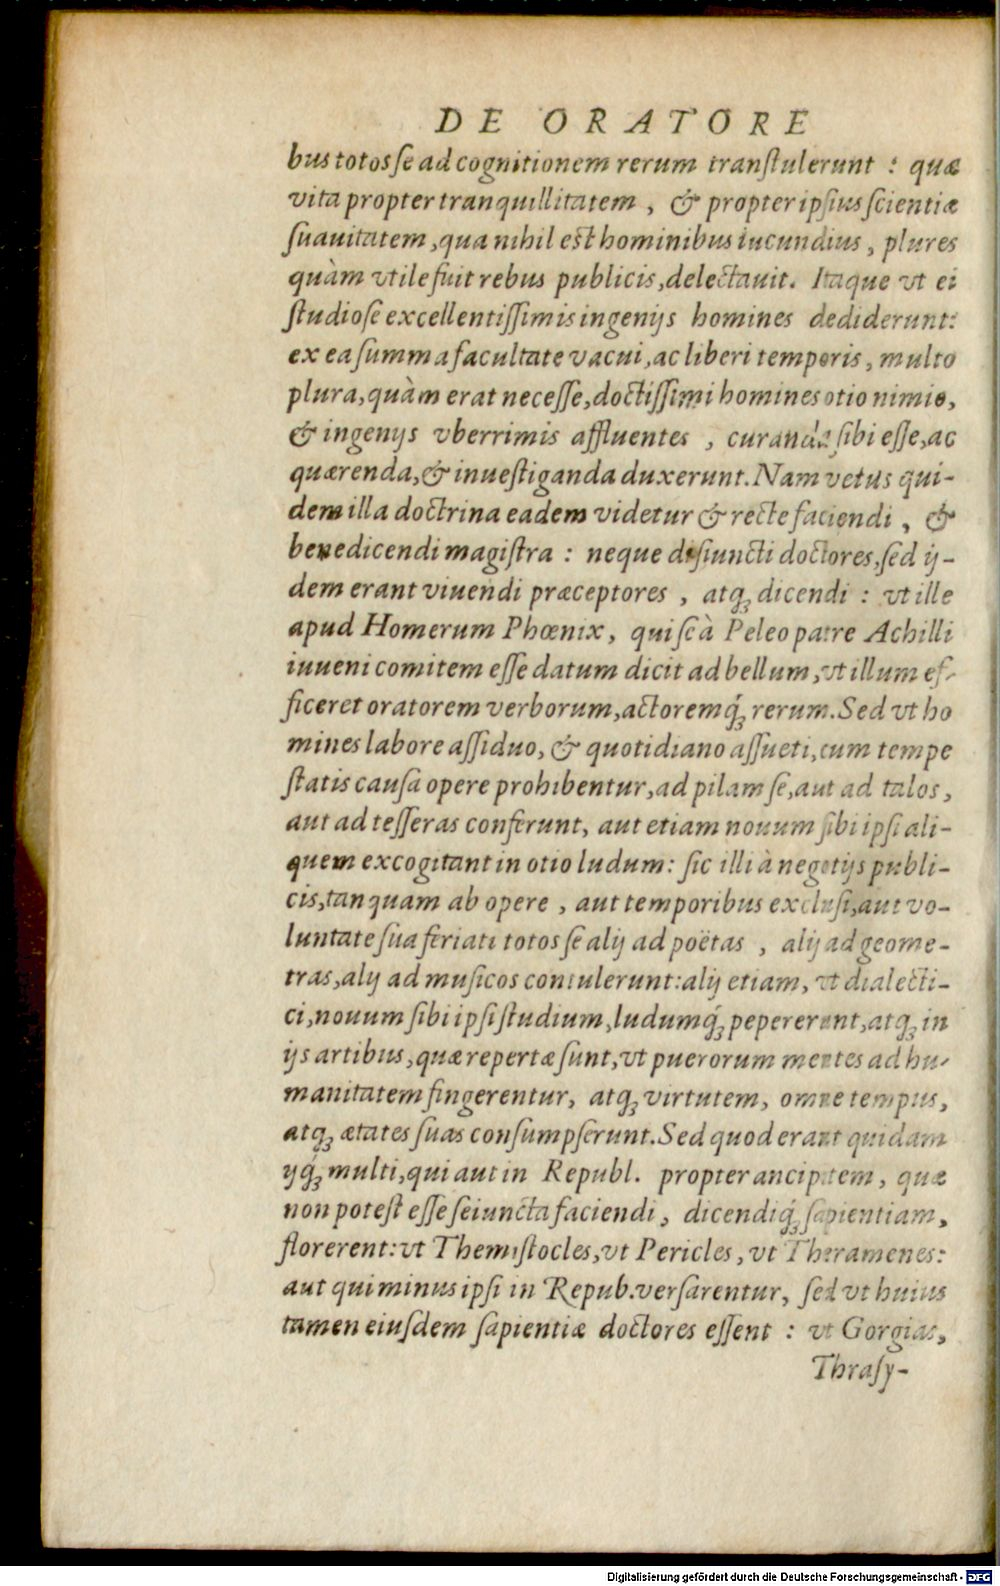 DE ORATORE
bus totos se ad cognitionem rerum transtulerunt : quæ
vita propter tranquillitatem , & propter ipsius scientiæ
suauitatem, qua nihil est hominibus iucundius, plures
quàm vtile fuit rebus publicis, delectauit. Itaque vt ei
studio se excellentissimis ingenijs homines dediderunt:
ex ea summa facultate vacui, ac liberi temporis, multo
plura, quàm erat necesse, doctissimi homines otio nimio,
& ingenijs vberrimis affluentes , curanda sibi esse, ac
quærenda, & inuestiganda duxerunt. Nam vetus qui-
dem illa doctrina eadem videtur & recte faciendi , &
bene dicendi magistra : neque disiuncti doctores, sed ij-
dem erant viuendi præceptores , atq́; dicendi : vt ille
apud Homerum Phœnix, qui se à Peleo patre Achilli
iuueni comitem esse datum dicit ad bellum, vt illum ef-
ficeret oratorem verborum, actoremq́; rerum. Sed vt ho
mines labore assiduo, & quotidiano assueti, cum tempe
statis causa opere prohibentur, ad pilam se, aut ad talos,
aut ad tesseras conferunt, aut etiam nouum sibi ipsi ali-
quem excogitant in otio ludum: sic illi à negotijs publi-
cis, tanquam ab opere , aut temporibus exclusi, aut vo-
luntate sua feriati totos se alij ad poëtas , alij ad geome-
tras, alij ad musicos contulerunt: alij etiam, vt dialecti-
ci, nouum sibi ipsi studium, ludumq́; pepererunt, atq; in
ijs artibus, quæ repertæ sunt, vt puerorum mentes ad hu-
manitatem fingerentur, atq; virtutem, omne tempus,
atq; ætates suas consumpserunt. Sed quod erant quidam
ijq́; multi, qui aut in Republ. propter ancipitem, quæ
non potest esse seiuncta faciendi, dicendiq́; sapientiam,
florerent: vt Themistocles, vt Pericles, vt Theramenes:
aut qui minus ipsi in Repub. versarentur, sed vt huius
tamen eiusdem sapientiæ doctores essent : vt Gorgias,
Thrasy-
Digitalisierung gefördert durch die Deutsche Forschungsgemeinschaft - DFG